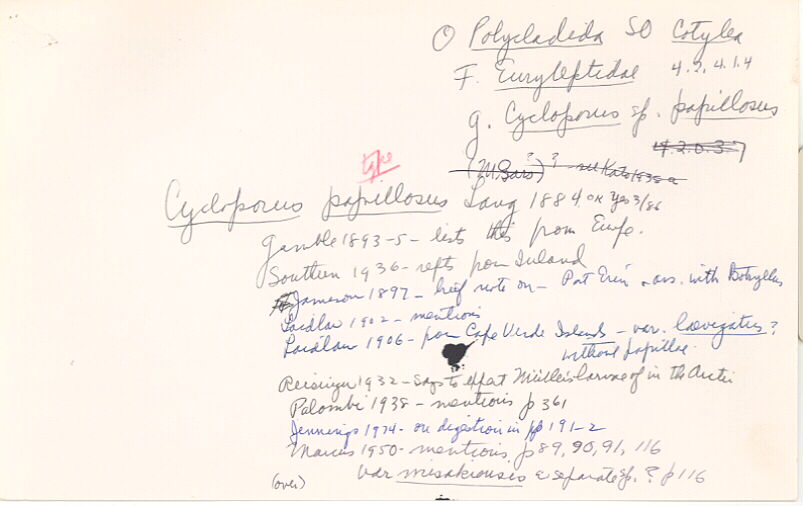 O Polycladida SO Cotylea
F. Euryleptidae 4.2.4.1.4
g. Cycloporus sp. papillosus
4.2.0.3.7
type
(M. Sars)? ? see Kato 1938a
Cycloporus papillosus Lang 1884 OK yes 3/86
Gamble 1893-5 - lists this from Eur.
Southern 1936 - repts from Ireland
Jameson 1897 - brief note on - Port Erin - ass. with Botryllus
Laidlaw 1902 - mentions
Laidlaw 1906 - from Cape Verde Islands - var. laevigatus?
without papillae.
Reisinger 1932 - says to effect Müller's larvae of in the Arctic
Palombi 1938 - mentions p 361
Jennings 1974 - on digestion in pp 191-2
Marcus 1950 - mentions, p 89, 90, 91, 116
var misakiensis a separate sp.? p 116
(over)